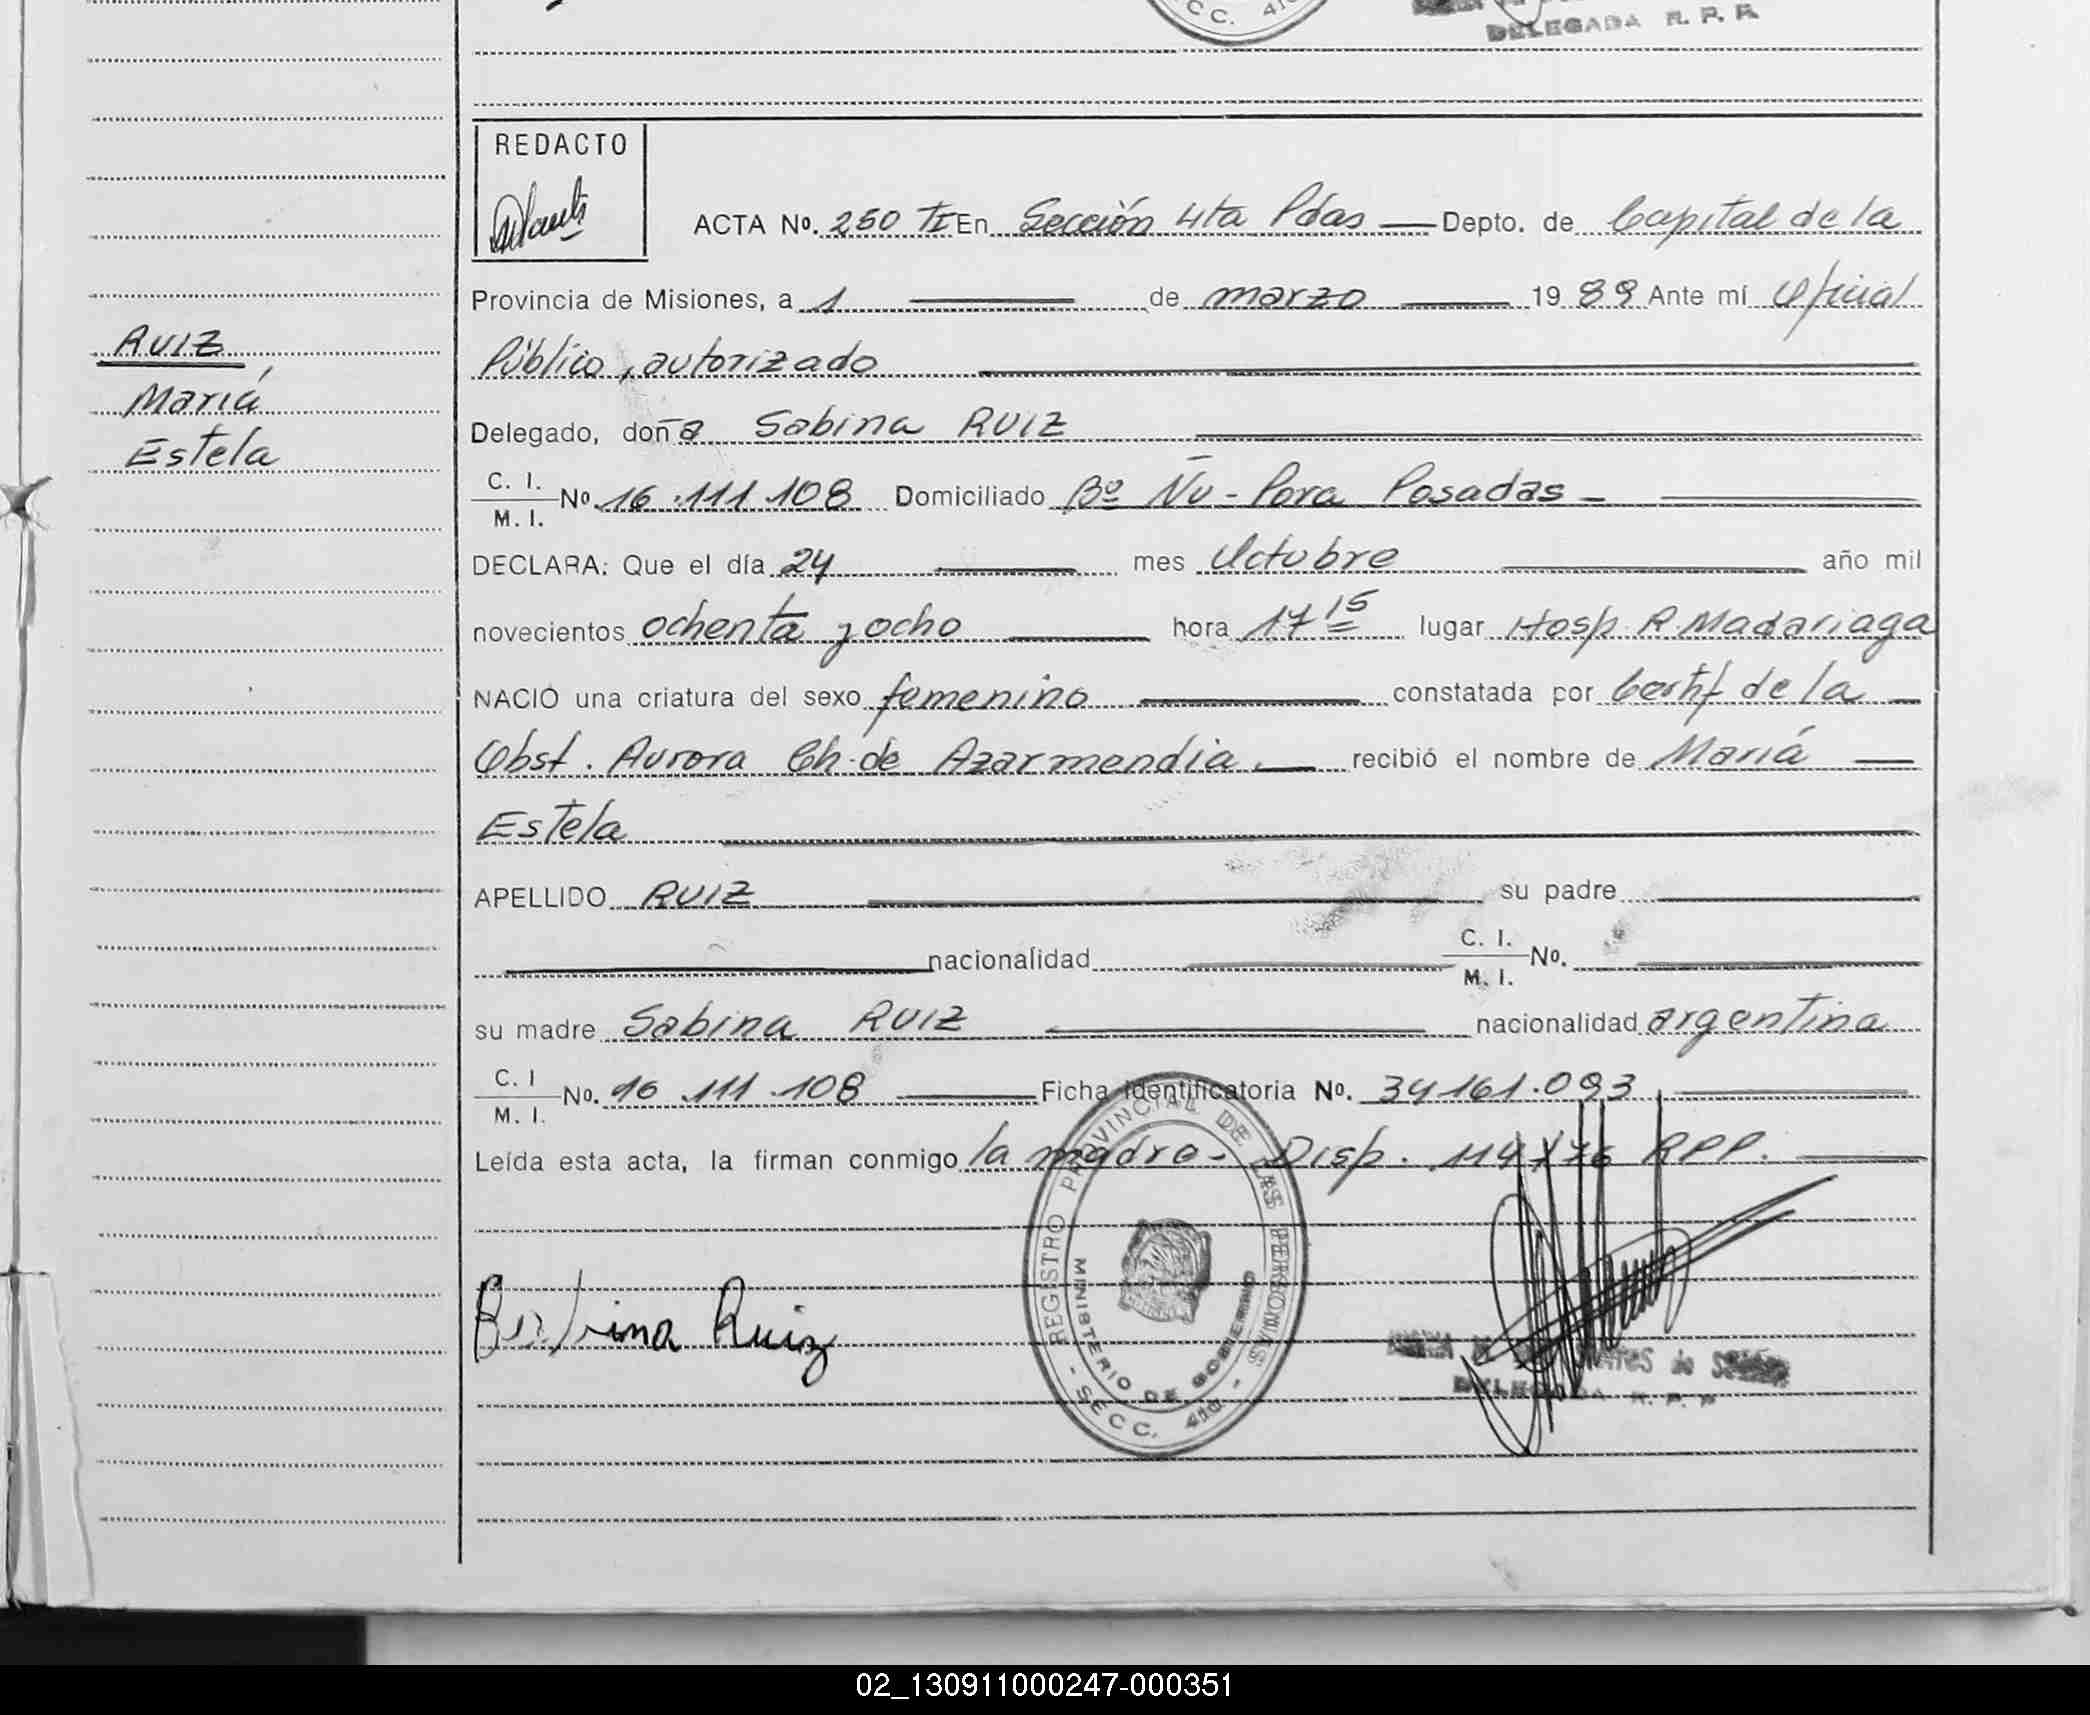 SECC. 410
DELEGADA R. P. P.
REDACTO
ACTA No. 250 TI En Sección 4ta Pdas — Depto. de Capital de la
Provincia de Misiones, a 1 de marzo 1989 Ante mí Oficial
Público, autorizado
RUIZ
Mariá
Estela
Delegado, doña Sabina RUIZ
C. I.
M. I. No. 16.111.108 Domiciliado Bº Ñu-Pora Posadas -
DECLARA: Que el día 24 mes Octubre año mil
novecientos ochenta y ocho hora 17 15 lugar Hosp. R Madariaga
NACIO una criatura del sexo femenino constatada por Certif de la
Obst. Aurora Ch. de Azarmendia. recibió el nombre de Mariá
Estela
APELLIDO RUIZ su padre
nacionalidad C. I.
M. I. No.
su madre Sabina RUIZ nacionalidad argentina
C. I
M. I. No. 16.111.108 Ficha identificatoria No. 34161.093
Leída esta acta, la firman conmigo la madre - Disp. 114/76 RPP.
REGISTRO PROVINCIAL DE LAS PERSONAS
MINISTERIO DE GOBIERNO
- SECC. 410 -
Ruiz
DELEGADA R. P. P.
02_130911000247-000351